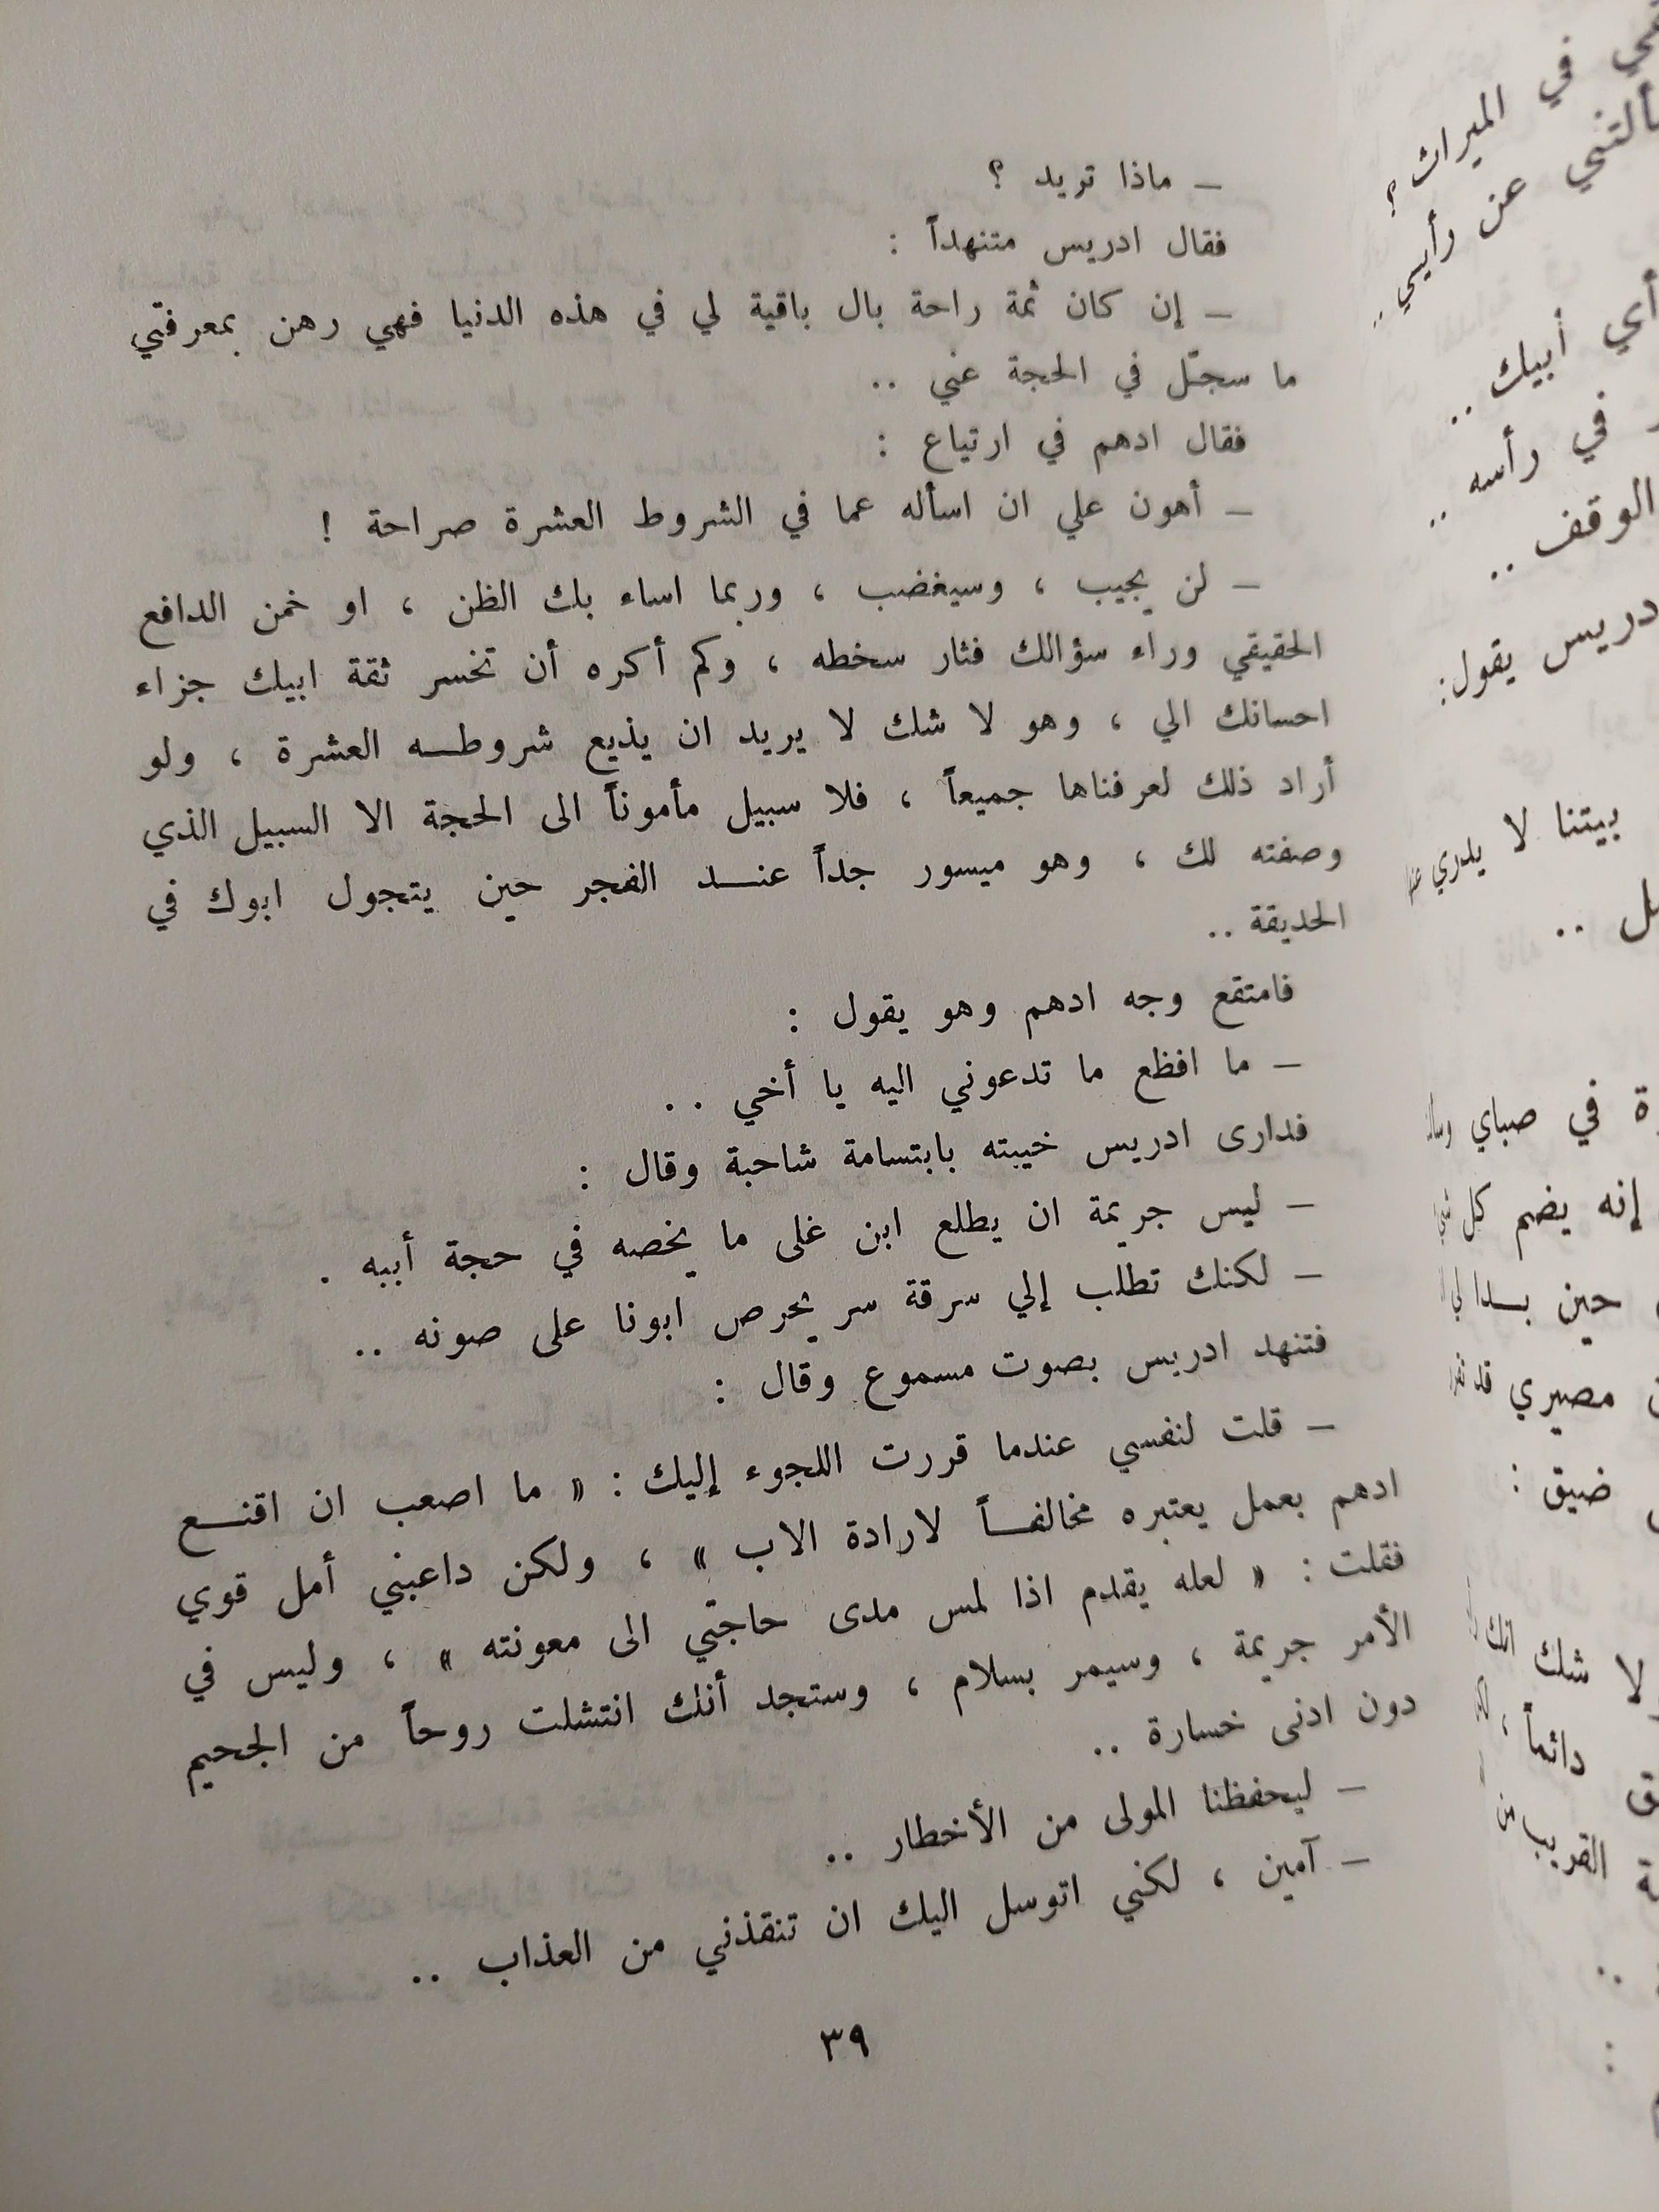 – ماذا تريد ؟
فقال ادريس متنهداً :
– إن كان ثمة راحة بال باقية لي في هذه الدنيا فهي رهن بمعرفتي
ما سجّل في الحجة عني ..
فقال ادهم في ارتياع :
– أهون علي ان اسأله عما في الشروط العشرة صراحة !
– لن يجيب ، وسيغضب ، وربما اساء بك الظن ، او خمن الدافع
الحقيقي وراء سؤالك فثار سخطه ، وكم أكره أن تخسر ثقة ابيك جزاء
احسانك الي ، وهو لا شك لا يريد ان يذيع شروطه العشرة ، ولو
أراد ذلك لعرفناها جميعاً ، فلا سبيل مأموناً الى الحجة الا السبيل الذي
وصفته لك ، وهو ميسور جداً عند الفجر حين يتجول ابوك في
الحديقة ..
فامتقع وجه ادهم وهو يقول :
– ما افظع ما تدعوني اليه يا أخي ..
فدارى ادريس خيبته بابتسامة شاحبة وقال :
– ليس جريمة ان يطلع ابن غلى ما يخصه في حجة أبيه .
– لكنك تطلب إلي سرقة سر يحرص ابونا على صونه ..
فتنهد ادريس بصوت مسموع وقال :
– قلت لنفسي عندما قررت اللجوء إليك : « ما اصعب ان اقنع
ادهم بعمل يعتبره مخالفاً لارادة الاب » ، ولكن داعبني أمل قوي
فقلت : « لعله يقدم اذا لمس مدى حاجتي الى معونته » ، وليس في
الأمر جريمة ، وسيمر بسلام ، وستجد أنك انتشلت روحاً من الجحيم
دون ادنى خسارة ..
– ليحفظنا المولى من الأخطار ..
– آمين ، لكني اتوسل اليك ان تنقذني من العذاب ..
٣٩
في الميراث ؟
عن رأيي ..
أبيك ..
في رأسه ..
الوقف ..
يقول:
بيتنا لا يدري
في صباي
إنه يضم كل
حين بدا
مصيري قد
ضيق :
لا شك انك
دائماً ،
القريب من